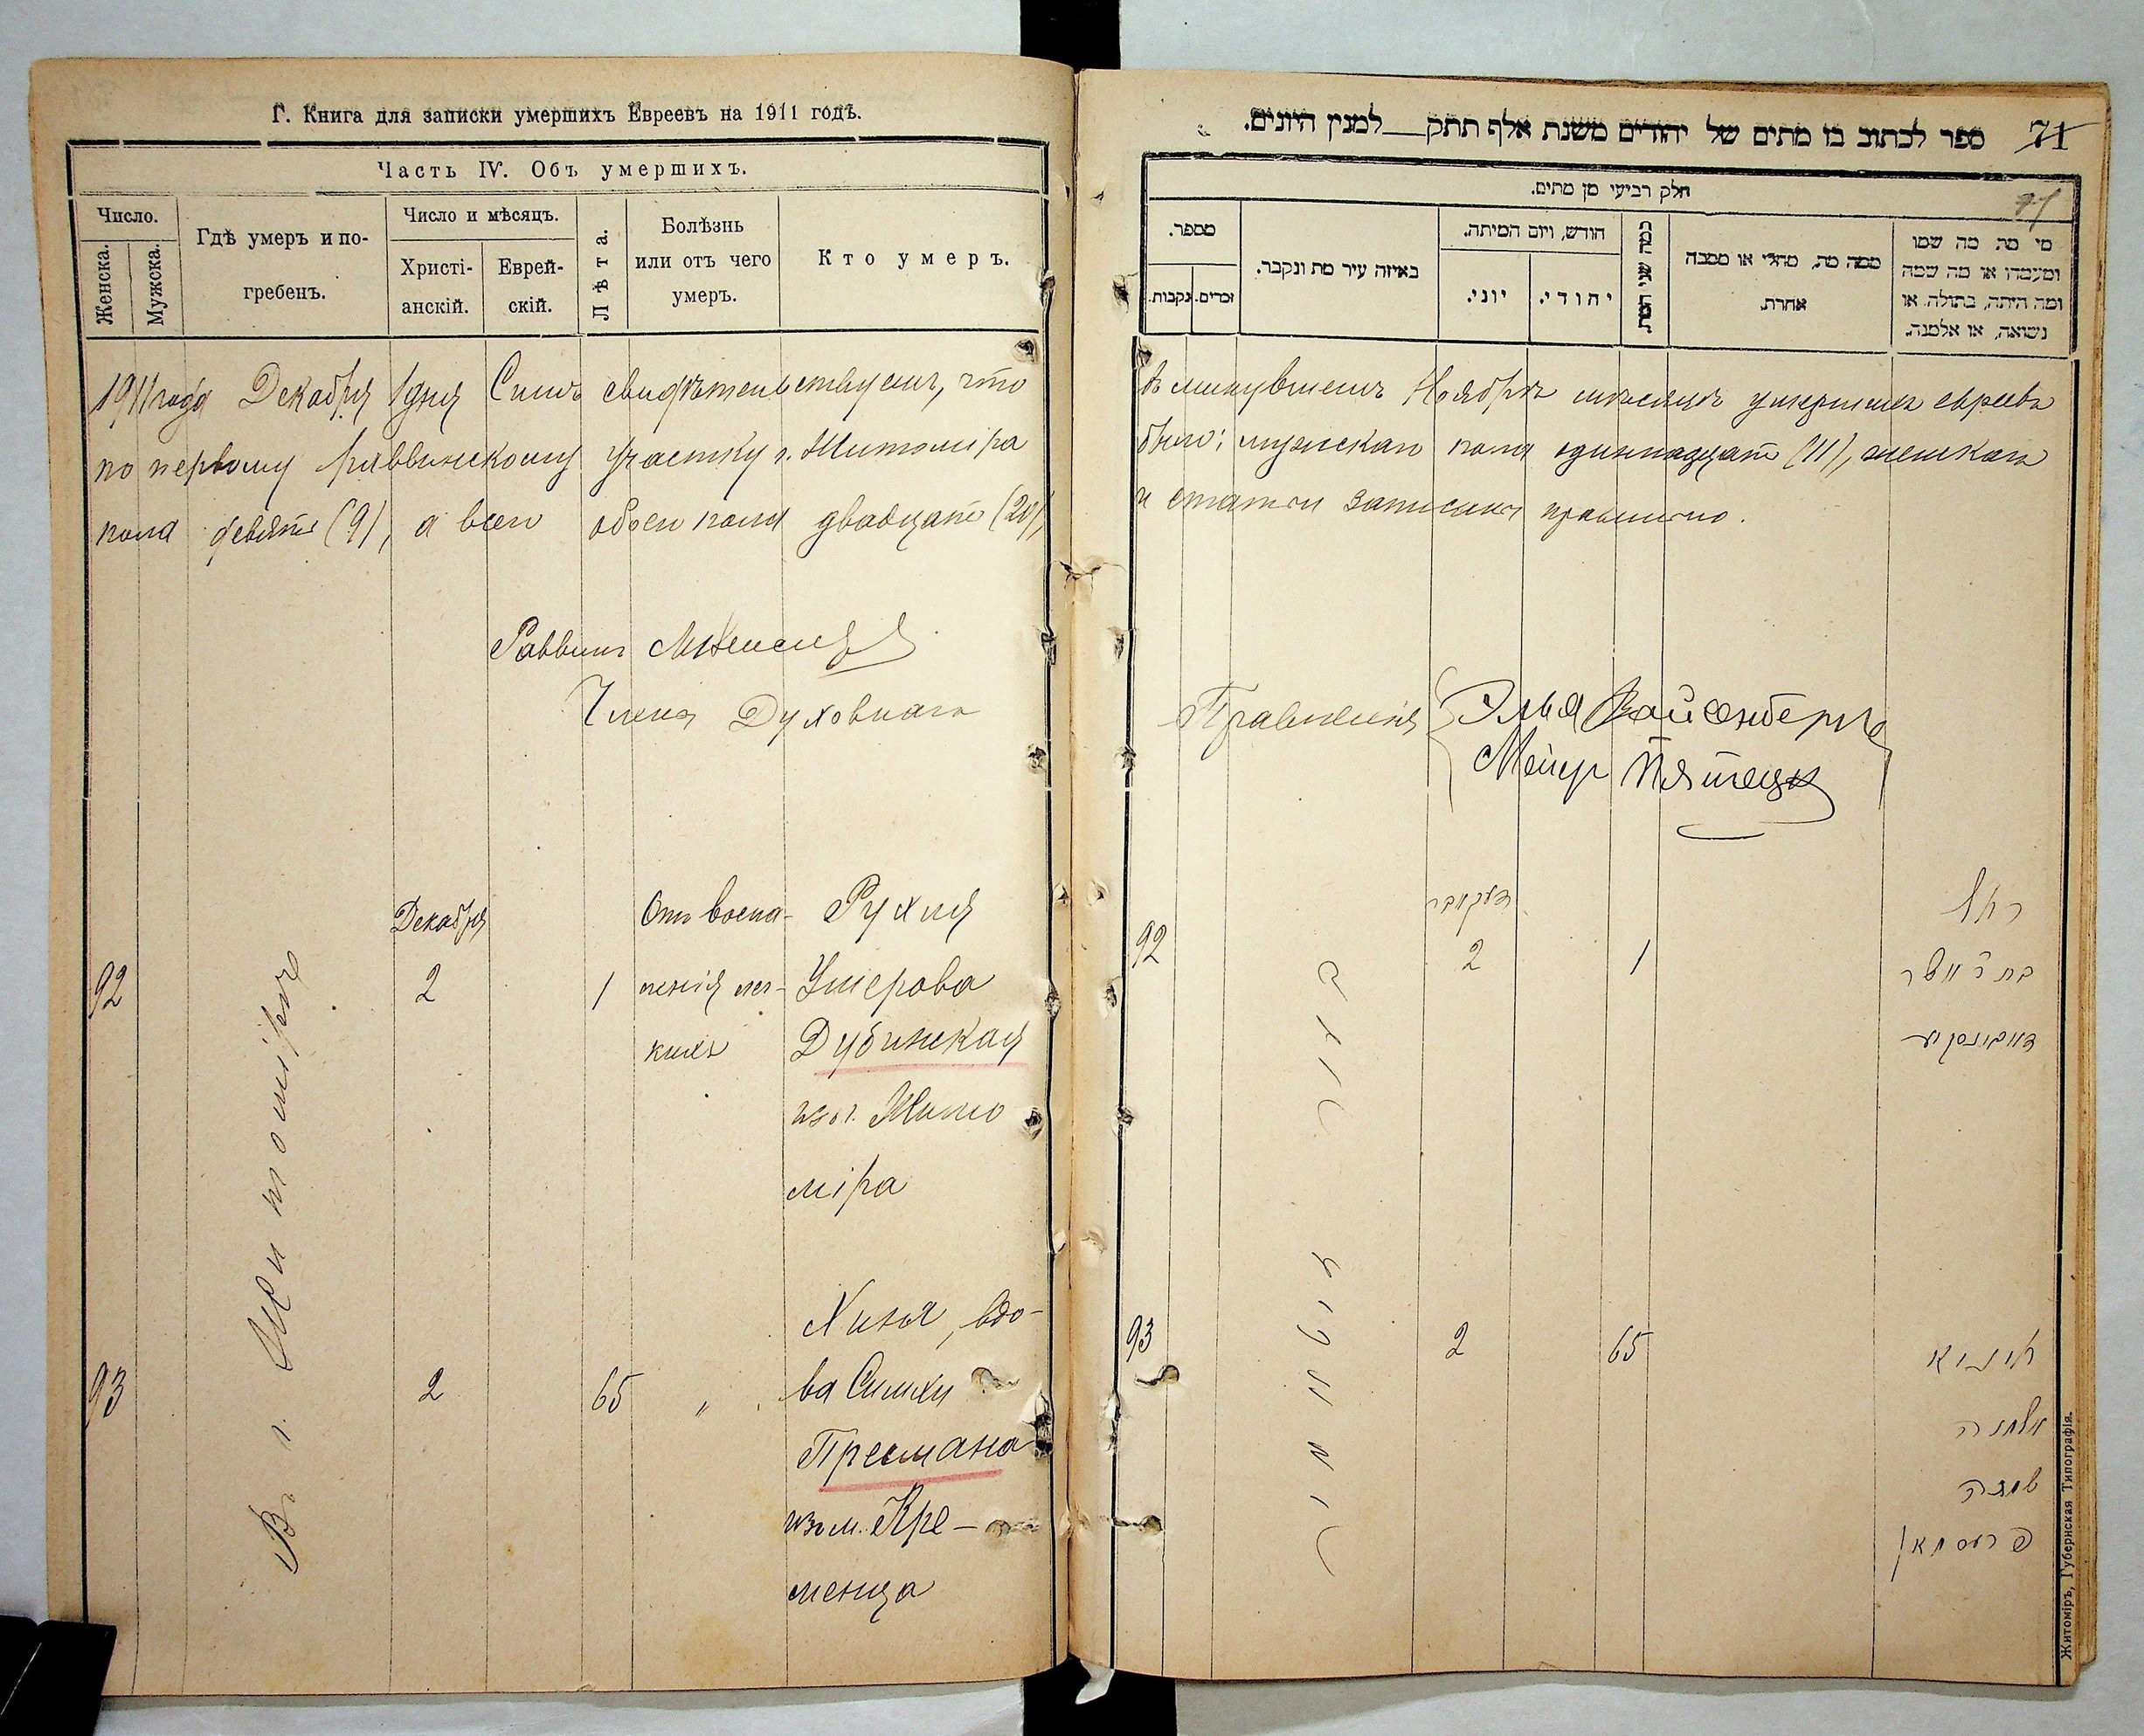 Г. Книга для записки умершихъ Евреевъ на 1911 годъ.
Часть IV. Объ умершихъ.
Число.
Женска.
Мужска.
Гдѣ умеръ и по-
гребенъ.
Число и мѣсяцъ.
Христі-
анскій.
Еврей-
скій.
Лѣта.
Болѣзнь
или отъ чего
умеръ.
Кто умеръ.
1911 года Декабря 1 дня Симъ свидѣтельствуемъ, что
по первому раввинскому участку г. Житоміра
пола девять (9), а всего обоего пола двадцать (20),
Раввинъ
Члены Духовнаго
Декабря
92
2
1
Отъ воспа-
ленія лег-
кихъ
Рухля
Ушерова
Дубинская
изъ г. Жито
міра
В г. Житомірѣ
93
2
65
"
Хиня, вдо-
ва Симхи
Пресмана
изъ м. Кре-
менца
ספר לכתוב בו מתים של יהודים משנת אלף תתק — למנין היונים.
71
71
חלק רביעי מן מתים.
מספר.
זכרים.
נקבות.
באיזה עיר מת ונקבר.
חודש, ויום המיתה.
יוני.
יהודי.
כמה שני המת.
ממה מת, מחלי או מסבה
אחרת.
מי מת, מה שמו
ומעמדו או מה שמה
ומה היתה, בתולה, או
נשואה, או אלמנה.
въ минувшемъ Ноябрѣ мѣсяцѣ умершихъ евреевъ
было: мужскаго пола одиннадцать (11), женскаго
и статьи записаны правильно.
Правленія
Элья Вайсенбергъ
Мейер
דעקאבר
92
2
1
רחל
בת ר' אשר
דובינסקי
בעיר
זיטאמיר
93
2
65
חיניא
אלמנה
שמחה
פרעסמאן
Житоміръ, Губернская Типографія.